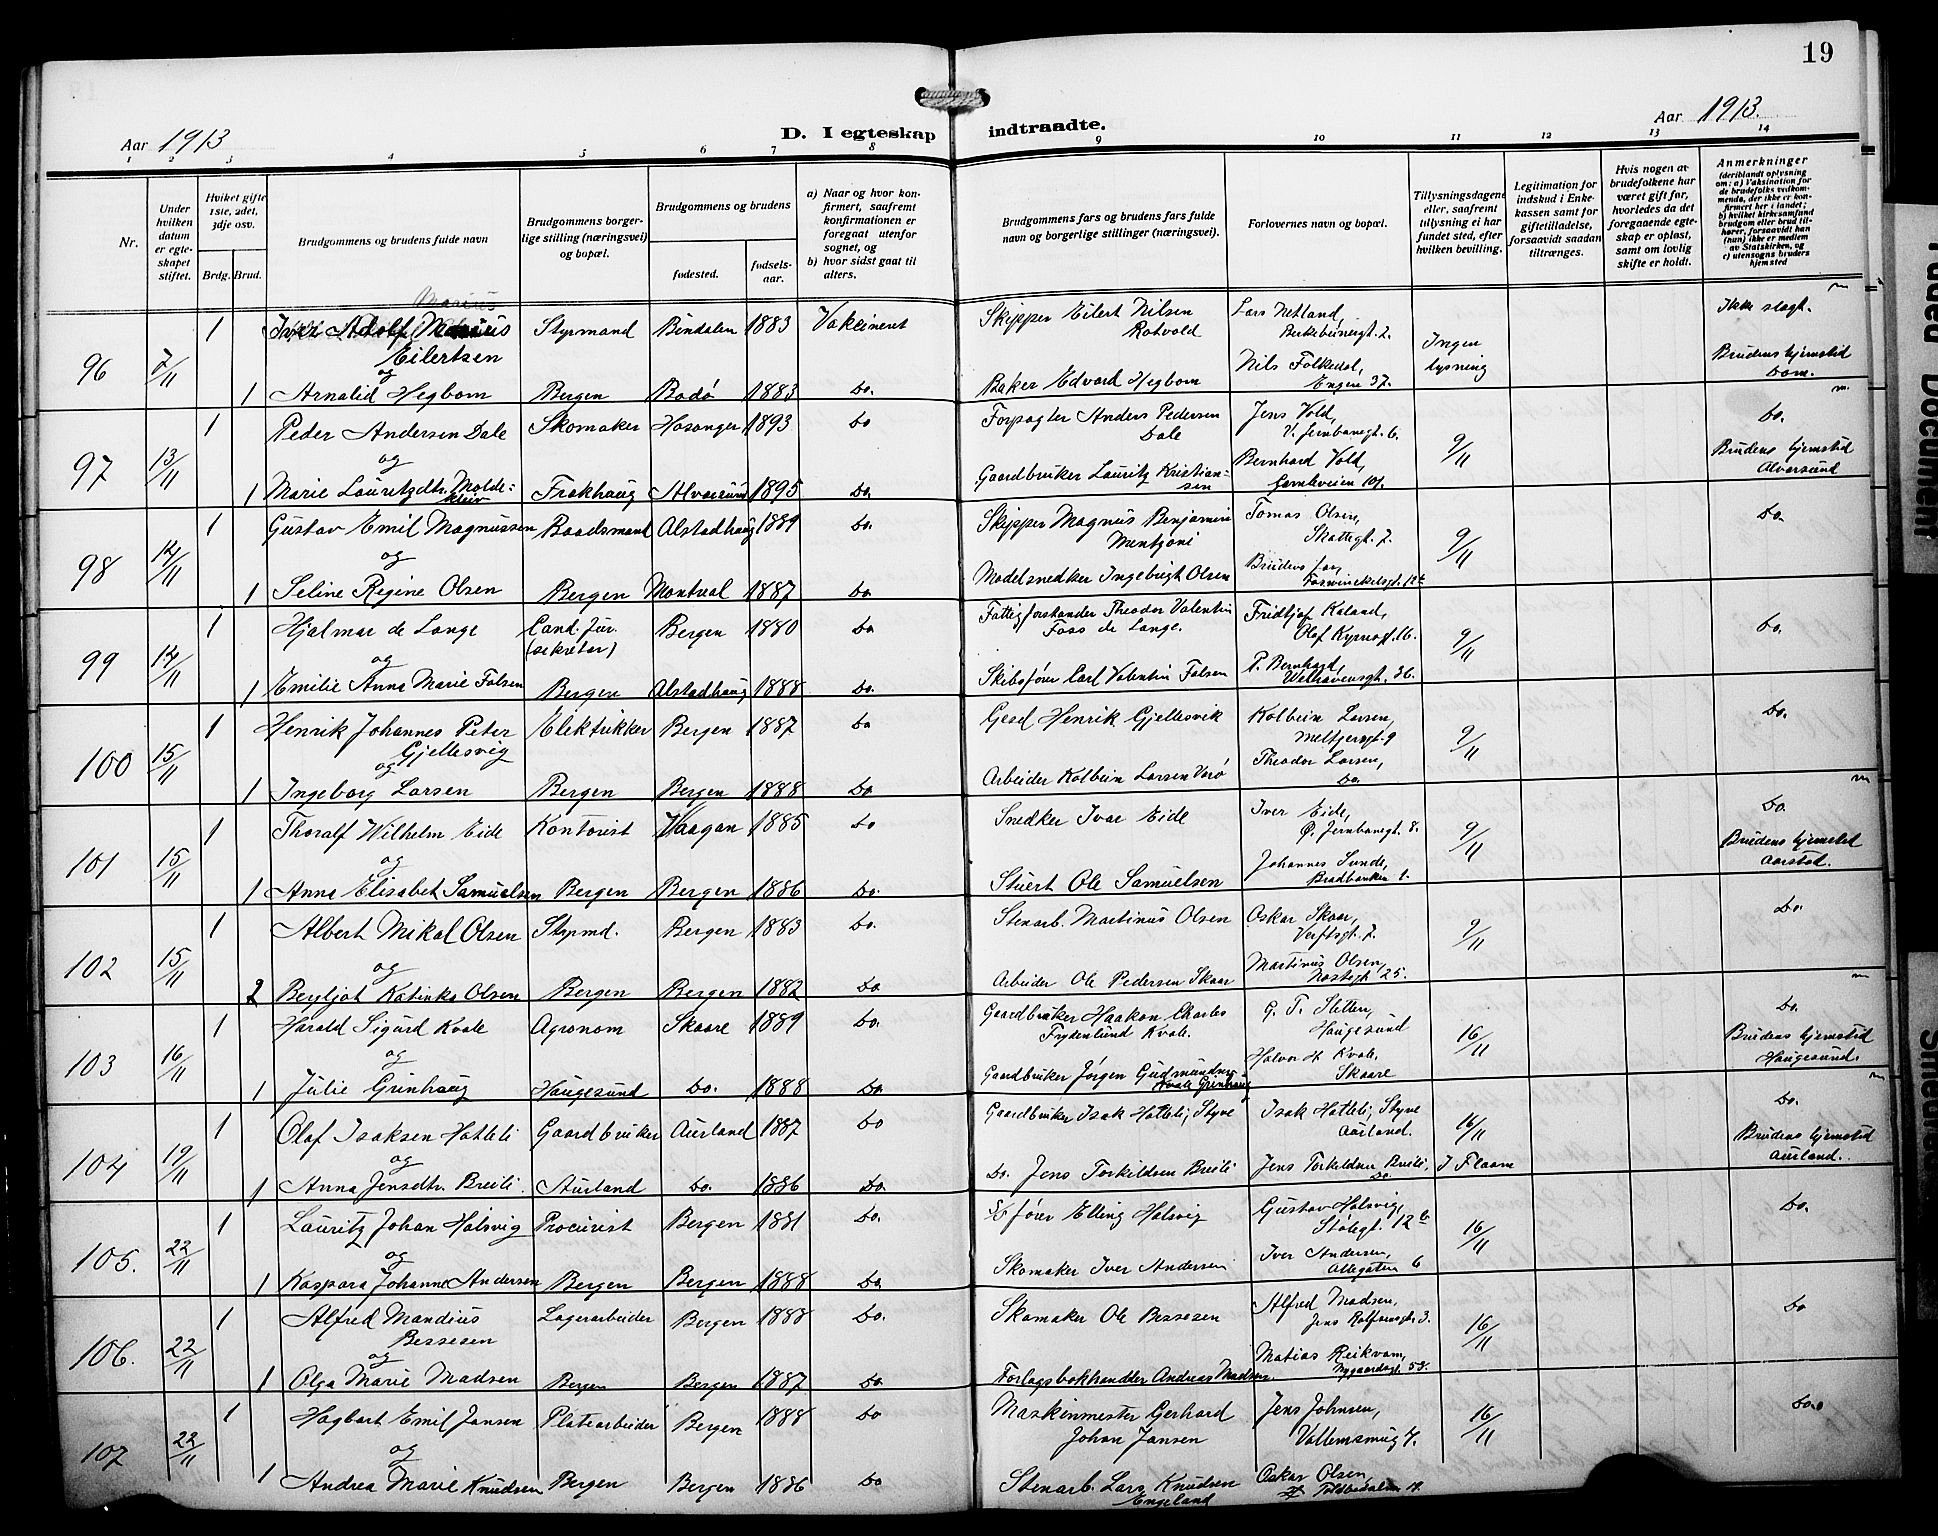 19
Aar 1913
D. I egteskap indtraadte.
Aar 1913.
1 2 3 4 5 6 7 8 9 10 11 12 13 14
Nr.
Under hvilken datum er egteskapet stiftet.
Hvilket gifte 1ste, 2det, 3dje osv.
Brdg. Brud.
Brudgommens og brudens fulde navn
Brudgommens borgerlige stilling (næringsvei) og bopæl.
Brudgommens og brudens
fødested.
fødselsaar.
a) Naar og hvor konfirmert, saafremt konfirmationen er foregaat utenfor sognet, og
b) hvor sidst gaat til alters.
Brudgommens fars og brudens fars fulde navn og borgerlige stillinger (næringsvei).
Forlovernes navn og bopæl.
Tillysningsdagene eller, saafremt tillysning ei har fundet sted, efter hvilken bevilling.
Legitimation for indskud i Enkekassen samt for giftetilladelse, forsaavidt saadan tiltrænges.
Hvis nogen av brudefolkene har været gift før, hvorledes da det foregaaende egteskap er opløst, samt om lovlig skifte er holdt.
Anmerkninger
(deriblandt oplysning om: a) Vaksination for de brudefolks vedkommende, der ikke er konfirmert her i landet; b) hvilket kirkesamfund brudgom eller brud tilhører, forsaavidt han (hun) ikke er medlem av Statskirken, og c) utensogns bruders hjemsted
96 7/11 1 Iver Adolf Marius Eilertsen Styrmand Bindalen 1883 Vakcineret Skipper Eilert Nilsen Rotvold Lars Netland, Birkebeinergt. 2. Ingen lysning Ikke slegt.
og
1 Arnalid Hegbom Bergen Bodø 1883 Do. Baker Edvard Hegbom Nils Folkedal, Engen 37. Brudens hjemsted Dom.
97 13/11 1 Peder Andersen Dale Skomaker Hosanger 1893 Do Forpagter Anders Pedersen Dale Jens Vold, V. Jernbanegt. 6. 9/11 Do.
og
1 Marie Lauritzdtr. Moldekleiv Frekhaug Alversund 1895 Do. Gaardbruker Lauritz Kristiansen Bernhard Vold, Gamleveien 101. Brudens hjemsted Alversund
98 14/11 1 Gustav Emil Magnussen Baadsmand Alstadhaug 1889 Do. Skipper Magnus Benjamin Mentzoni Tomas Olsen, Skottegt. 7. 9/11 Do.
og
1 Seline Regine Olsen Bergen Montreal 1887 Do. Modelsnedker Ingebrigt Olsen Brudens far,
99 14/11 1 Hjalmar de Lange Cand. Jur. (sekretær) Bergen 1880 Do Fattigforstander Theodor Valentin Foss de Lange. Fridtjof Kaland, Olaf Kyrresgt. 16. 9/11 Do.
og
1 Emilie Anna Marie Falsen Bergen Alstadhaug 1888 Do. Skibsfører Carl Valentin Falsen P. Bernhard, Welhavensgt. 36.
100 15/11 1 Henrik Johannes Peter Gjellesvig Elektrikker Bergen 1887 Do Gesel Henrik Gjellesvik Kolbein Larsen, Meltzersgt. 9 9/11 Do.
og
1 Ingeborg Larsen Bergen Bergen 1888 Do. Arbeider Kolbein Larsen Verø Theodor Larsen, Do.
101 15/11 1 Thoralf Wilhelm Eide Kontorist Vaagan 1885 Do Snedker Ivar Eide Iver Eide, Ø. Jernbanegt. 8. 9/11 Do.
og
1 Anna Elisabet Samuelsen Bergen Bergen 1886 Do. Stuert Ole Samuelsen Johannes Sunde, Bradbenken 1. Brudens hjemsted Aarstad.
102 15/11 1 Albert Mikal Olsen Styrmd. Bergen 1883 Do. Stenarb. Martinus Olsen Oskar Skaar, Verftsgt. 7. 9/11 Do.
og
2 Bergljot Katinka Olsen Bergen Bergen 1882 Do Arbeider Ole Pedersen Skaar Martinus Olsen, Nøstegt. 25.
103 16/11 1 Harald Sigurd Kvale Agronom Skaare 1889 Do. Gaardbruker Haakon Charles Frydenlund Kvale. G. T. Sletten, Haugesund 16/11 Do.
og
1 Julie Grinhaug Haugesund Do. 1888 Do. Gaardbruker Jørgen Gudmundsen Kvale Grinhaug Halvor H. Kvale. Skaare Brudens hjemsted Haugesund.
104 19/11 1 Olaf Isaksen Hatleli Gaardbruker Aurland 1887 Do Gaardbruker Isak Hatleli, Styve Isak Hatleli, Styve Aurland. 16/11 Do.
og
1 Anna Jensdtr. Breili. Aurland Do. 1886 Do. Do. Jens Torkildsen Breili Jens Torkildsen Breili, Do. I Flaam Brudens hjemsted Aurland.
105. 22/11 1 Lauritz Johan Halsvig Procurist Bergen 1881 Do. Sk.fører Elling Halsvig Gustav Halsvig, Stølegt. 12 b 16/11 Do.
og
1 Kaspara Johanne Andersen Bergen Bergen 1888 Do. Skomaker Iver Andersen Iver Andersen, Allegaten 6
106. 22/11 1 Alfred Mandius Bessesen Lagerarbeider Bergen 1888 Do. Skomaker Ole Bessesen Alfred Madsen, Jens Rolfsensgt. 3. 16/11 Do
og
1 Olga Marie Madsen Bergen Bergen 1887 Do. Forlagsbokhandler Andreas Madsen Matias Reikvam, Nygaardsgt. 59.
107 22/11 1 Hagbart Emil Jansen Platearbeider Bergen 1888 Do Maskinmester Gerhard Johan Jansen Jens Johnsen, Vollemsmug 4. 16/11 Do.
og
1 Andrea Marie Knudsen Bergen Bergen 1886 Do Stenarb. Lars Knudsen Engeland Oskar Olsen,